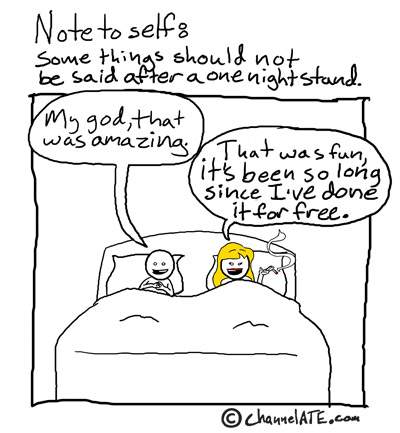 Note to self:
Some things should not
be said after a one night stand.
My god, that
was amazing.
That was fun,
it's been so long
since I've done
it for free.
© ChannelATE.com